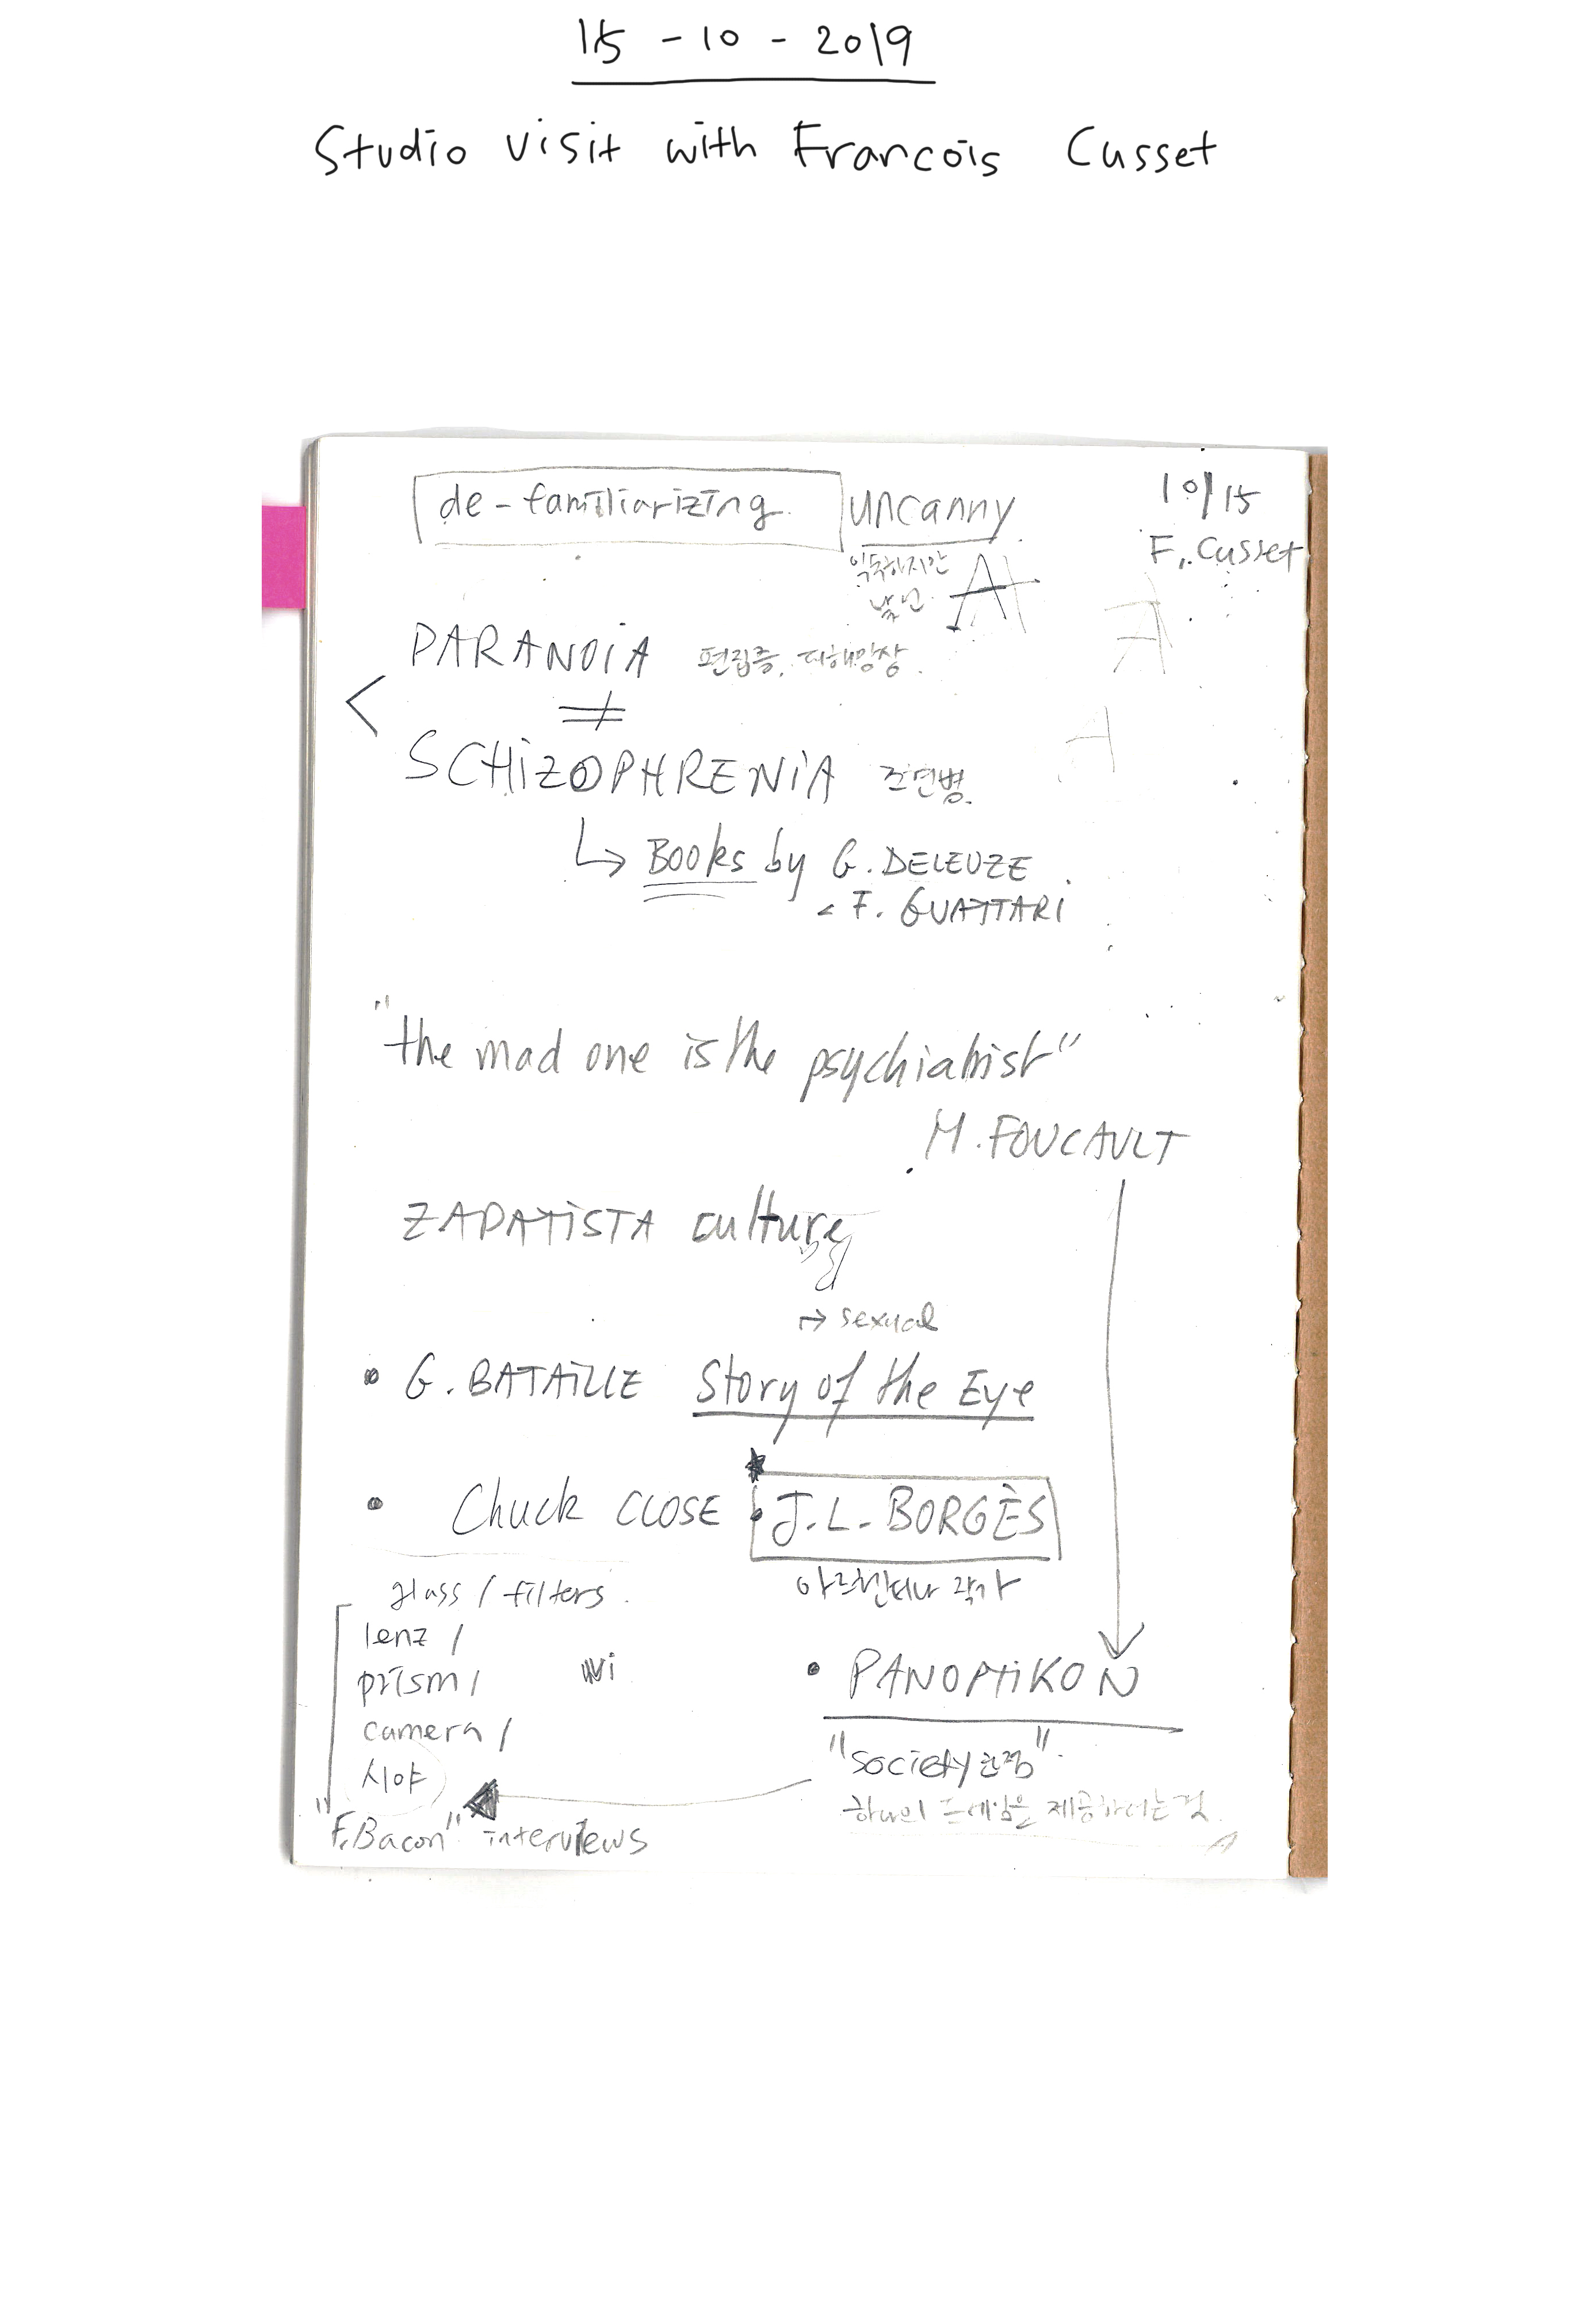 15 - 10 - 2019
Studio visit with Francois Cusset
de-familiarizing uncanny
10/15
F. Cusset
익숙하지만
낯선
A
PARANOiA 편집증, 피해망상
<
≠
SCHiZOPHRENiA 조현병
↳ Books by G. DELEUZE
F. GUATTARI
"the mad one is the psychiatrist"
M. FOUCAULT
ZAPATiSTA culture
→ sexual
• G. BATAiLLE Story of the Eye
• Chuck CLOSE • J.L. BORGÈS
아르헨티나 작가
glass / filters
lenz /
prism /
camera /
시야
• PANOPTiKON
"society 관점"
하나의 프레임을 제공하려는 것
"F. Bacon" interviews